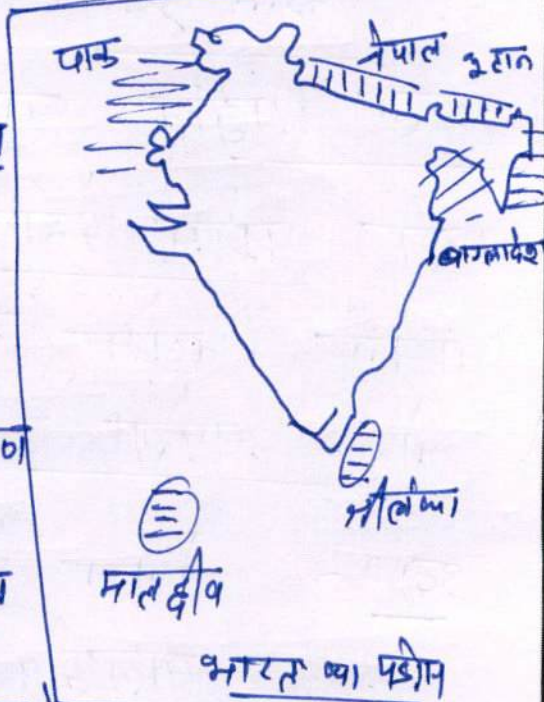 पाक
नेपाल भूटान
बांग्लादेश
श्रीलंका
मालद्वीव
भारत का पड़ोस